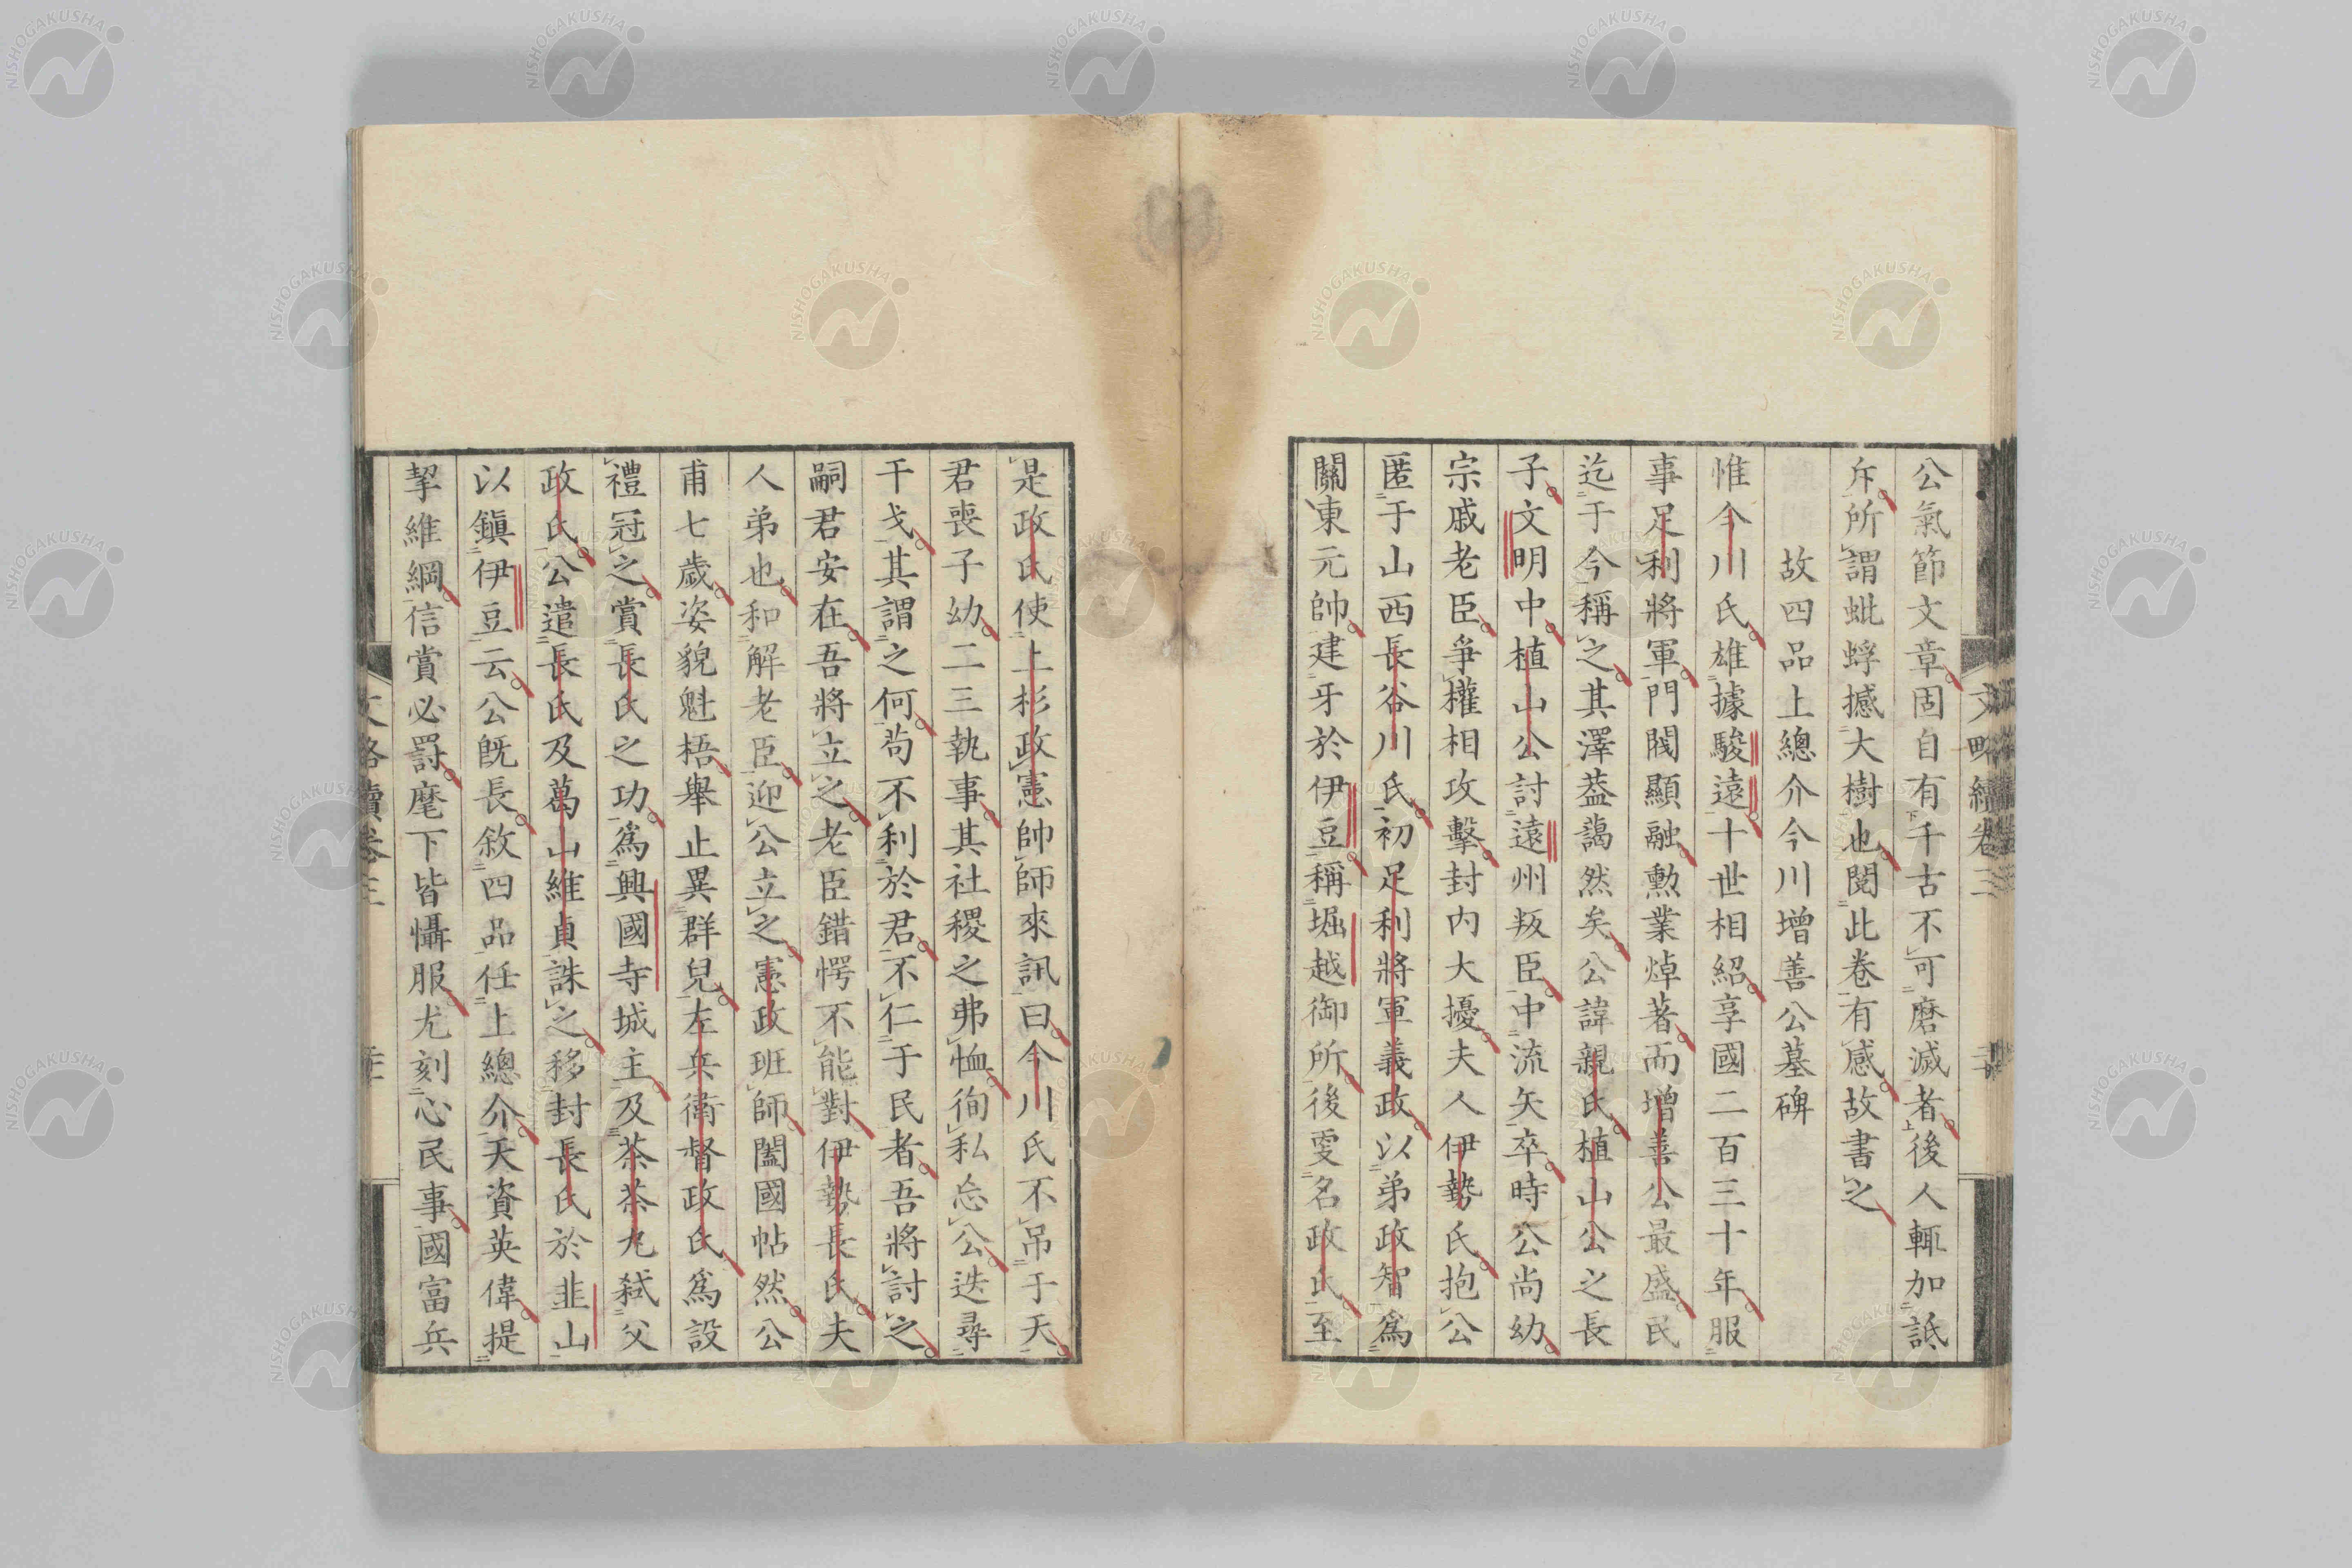 公氣節文章固自有千古不可磨滅者後人輒加詆
斥所謂蚍蜉撼大樹也閱此卷有感故書之
故四品上總介今川增善公墓碑
惟今川氏雄據駿遠十世相紹享國二百三十年服
事足利將軍門閥顯融勲業焯著而增善公最盛民
迄于今稱之其澤葢藹然矣公諱親氏植山公之長
子文明中植山公討遠州叛臣中流矢卒時公尚幼
宗戚老臣爭權相攻擊封内大擾夫人伊勢氏抱公
匿于山西長谷川氏初足利將軍義政以弟政智爲
關東元帥建牙於伊豆稱堀越御所後更名政氏至
是政氏使上杉政憲帥師來訊曰今川氏不吊于天
君喪子幼二三執事其社稷之弗恤徇私忘公迭尋
干戈其謂之何苟不利於君不仁于民者吾將討之
嗣君安在吾將立之老臣錯愕不能對伊勢長氏夫
人弟也和解老臣迎公立之憲政班師闔國帖然公
甫七歲姿貌魁梧舉止異群兒左兵衛督政氏爲設
禮冠之賞長氏之功爲興國寺城主及茶茶丸弑父
政氏公遣長氏及葛山維貞誅之移封長氏於韭山
以鎭伊豆云公旣長敘四品任上總介天資英偉提
挈維綱信賞必罰麾下皆懾服尤刻心民事國富兵
文略續卷三
NISHOGAKUSHA